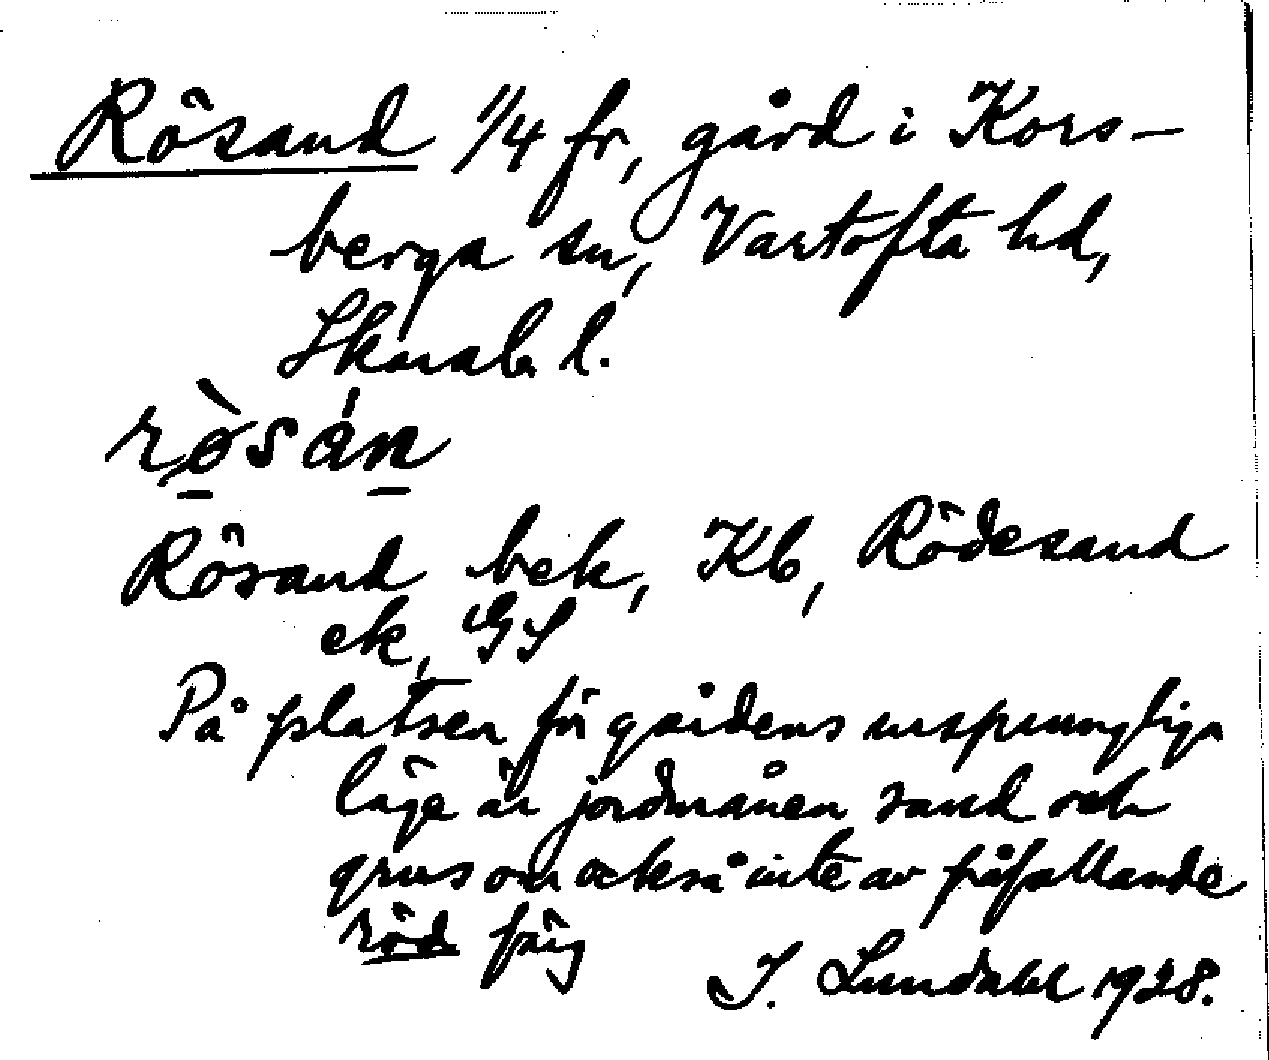 Rösand 1/4 fr, gård i Kors-
berga sn, Vartofta hd,
Skarab. l.
rò̱sán̠
Rösand bek, Kb, Rödesand
ek, GS
På platsen för gårdens ursprungliga
läge är jordmånen sand och
grus om också inte av påfallande
röd färg
I. Lundahl 1928.